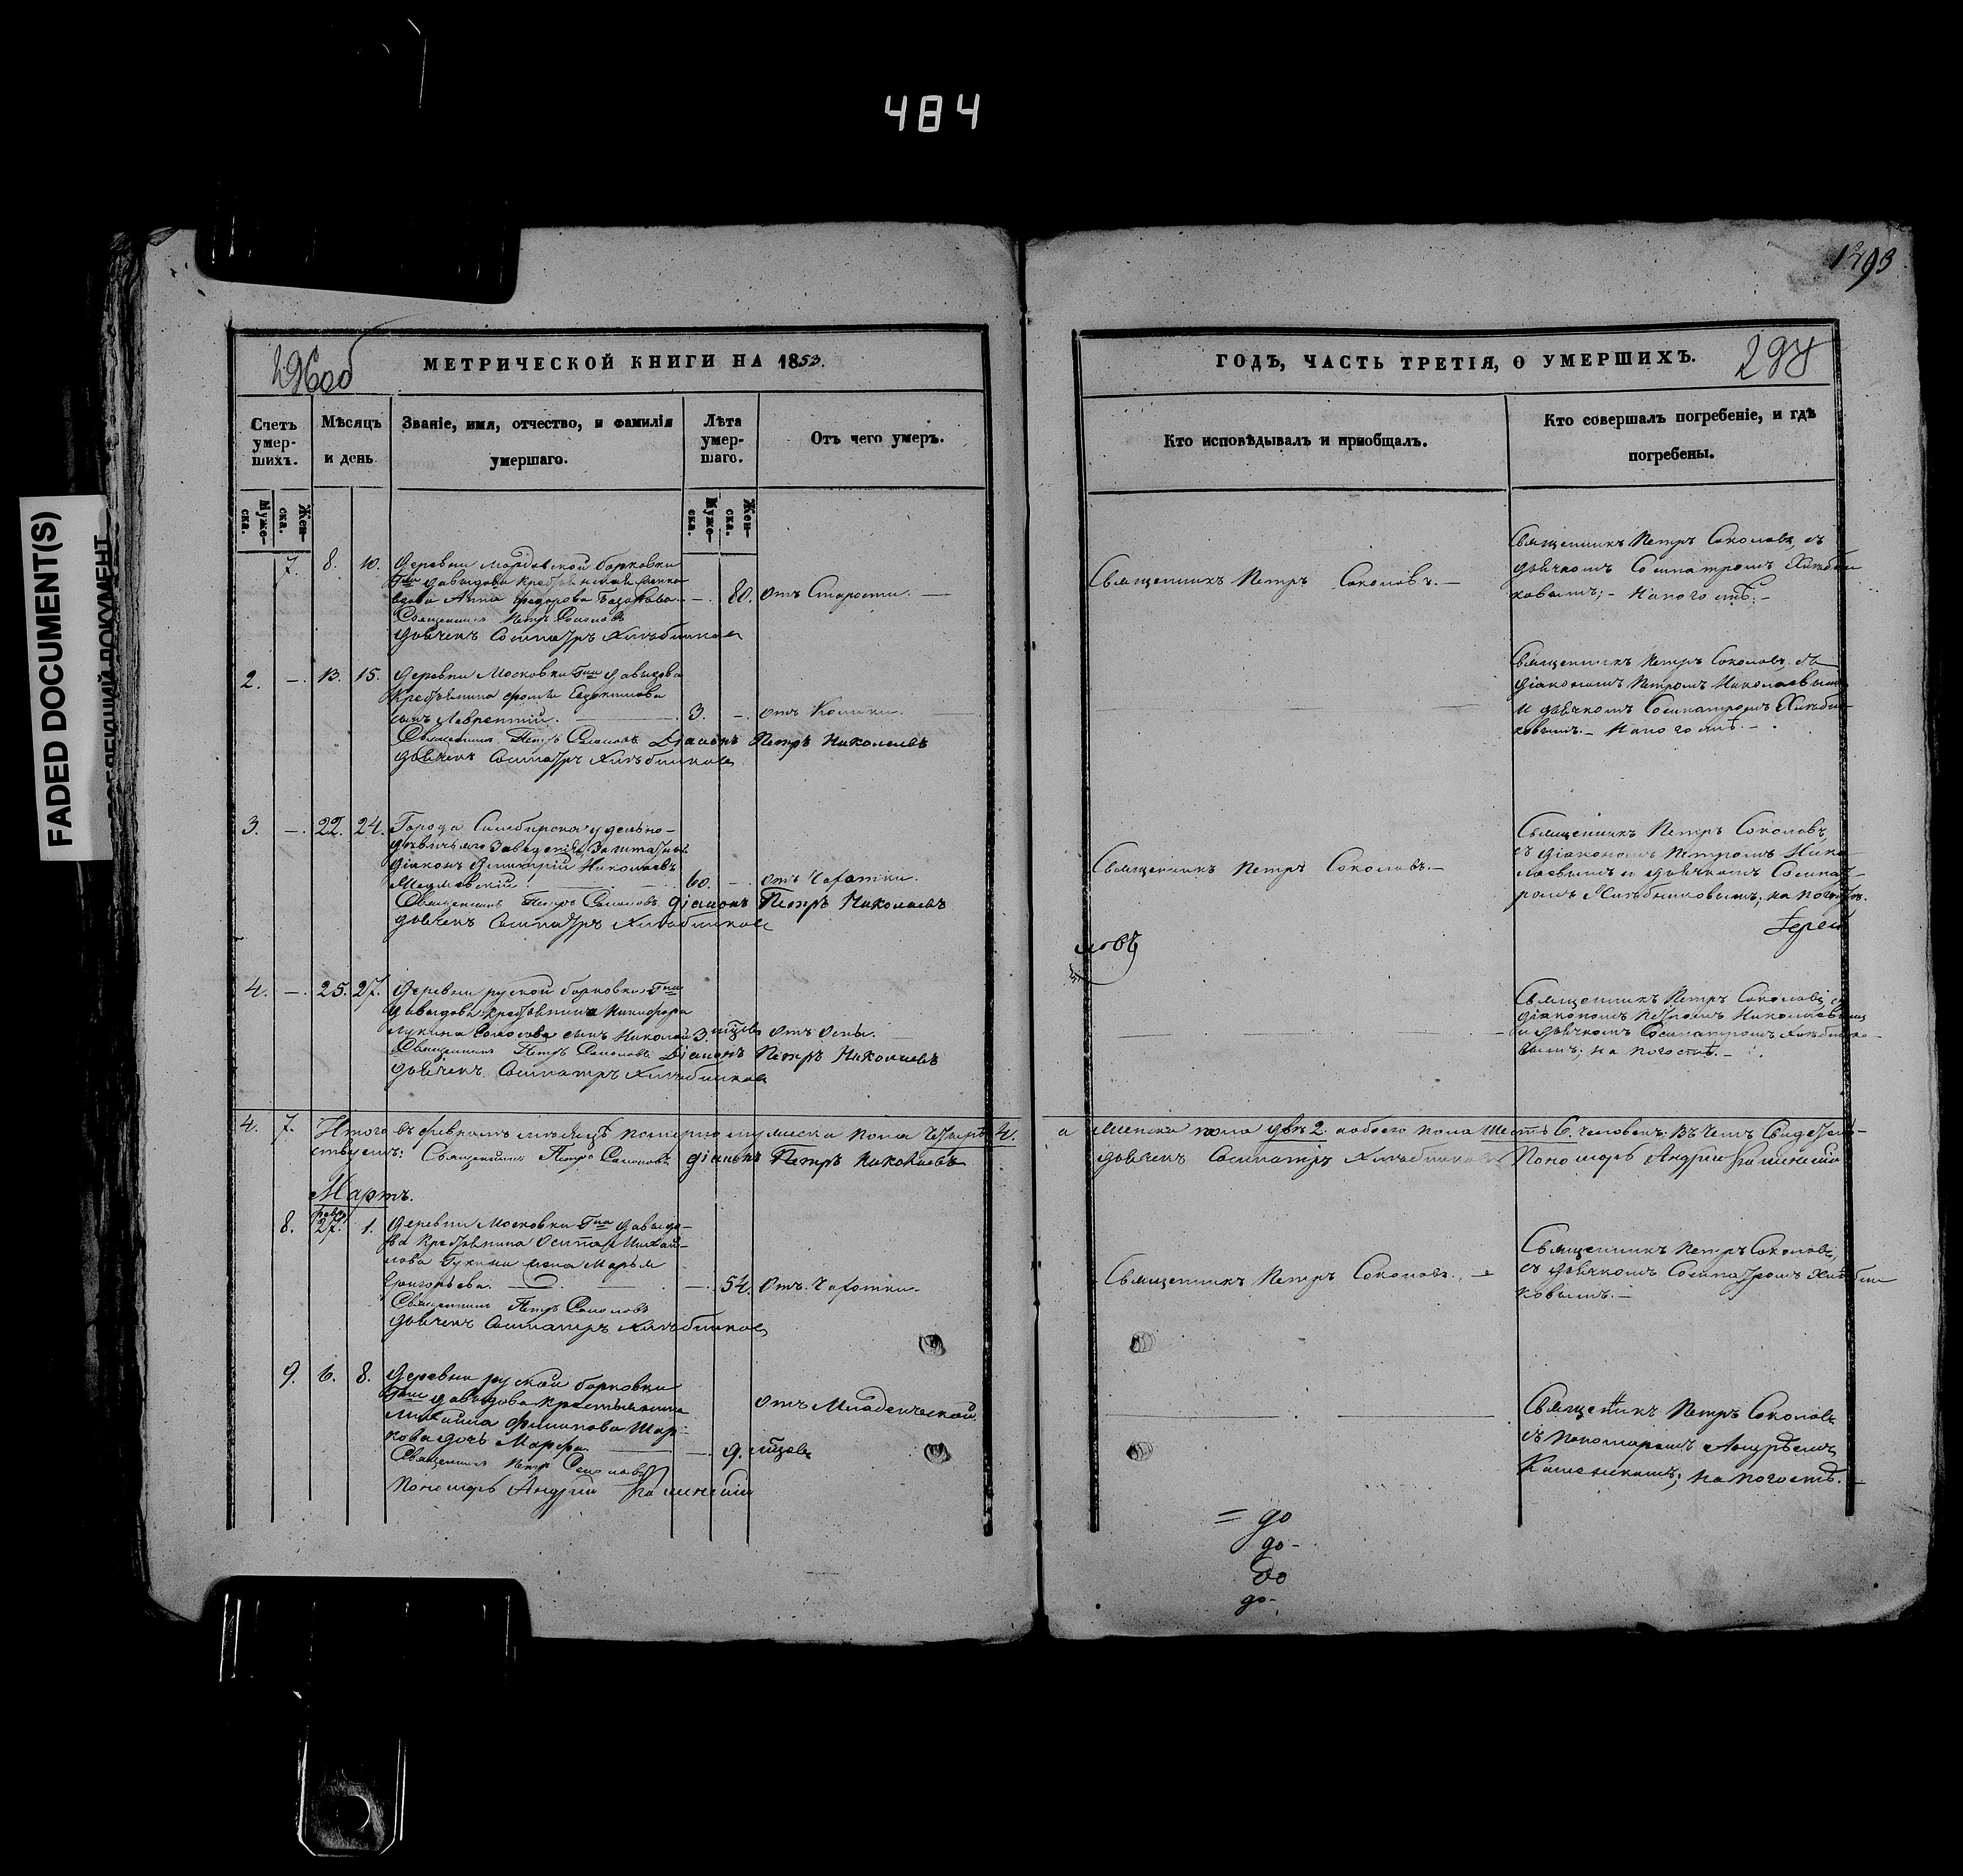 484
FADED DOCUMENT(S)
1293
296об
МЕТРИЧЕСКОЙ КНИГИ НА 1853.
Счетъ умер-шихъ.
Мѣсяцъ и день
Званіе, имя, отчество, и фамилія умершаго.
Лѣта умер-шаго.
Отъ чего умеръ.
Муже-ска.
Жен-ска.
Муже-ска.
Жен-ска.
7. 8. 10. Деревни мордовской борковки
Гна Давыдова
вдова Анна Федорова — 80. отъ Старости. —
Священникъ Петръ Соколовъ
дьячекъ Сосипатръ Хлѣбниковъ
2. — 13. 15. Деревни Московки Гна Давыдова
Крестьянина Евдокимова
сынъ Лаврентий. 3. — отъ
Священникъ Петръ Соколовъ Діаконъ Петръ Николаевъ
дьячекъ Сосипатръ Хлѣбниковъ
3. — 22. 24. Города Симбирска удѣльно-
Заштатный
діаконъ Дмитрий Николаевъ
60. — отъ Чахотки.
Священникъ Петръ Соколовъ діаконъ Петръ Николаевъ
дьячекъ Сосипатръ Хлѣбниковъ
4. — 25. 27. Деревни руской борковки Гна
Давыдова крестьянина Никифора
Лукина сынъ Николай 3. мцов отъ Оспы.
Священникъ Петръ Соколовъ Діаконъ Петръ Николаевъ
дьячекъ Сосипатръ Хлѣбниковъ
4. 7. Итого въ февралѣ мѣсяцѣ померло мужеска пола Четыре 4.
ствуемъ: Священникъ Петръ Соколовъ діаконъ Петръ Николаевъ
Мартъ.
8. 27. 1. Деревни Московки Гна Давыдо-
ва Крестьянина Осипа Михай-
лова жена Марья
Григорьева. — 54. Отъ Чахотки.
Священникъ Петръ Соколовъ
дьячекъ Сосипатръ Хлѣбниковъ
9. 6. 8. Деревни руской борковки
Гна Давыдова Крестьянина отъ Младенческой.
Михаила Филипова Шар-
кова дочь Марфа — 9. мцовъ
Священникъ Петръ Соколовъ
Пономарь Андрей Каменский
ГОДЪ, ЧАСТЬ ТРЕТІЯ, О УМЕРШИХЪ.
297
Кто исповѣдывалъ и приобщалъ.
Кто совершалъ погребеніе, и гдѣ погребены.
Священникъ Петръ Соколовъ. —
Священникъ Петръ Соколовъ, съ
дьячкомъ Сосипатромъ Хлѣбни
ковымъ; — На погостѣ. —
Священникъ Петръ Соколовъ, съ
діакономъ Петромъ Николаевымъ
и дьячкомъ Сосипатромъ Хлѣбни-
ковымъ. — На погостѣ. —
Священникъ Петръ Соколовъ. —
Священникъ Петръ Соколовъ,
съ діакономъ Петромъ Нико-
лаевымъ и дьячкомъ Сосипат-
ромъ Хлѣбниковымъ; на погостѣ.
Священникъ Петръ Соколовъ, съ
діакономъ Петромъ Николаевымъ
и дьячкомъ Сосипатромъ Хлѣбнико-
вымъ; на погостѣ. —
а женска пола двѣ 2. а обоего пола Шесть 6. человекъ. Въ чемъ Свидетель-
дьячекъ Сосипатръ Хлѣбниковъ Пономарь Андрей Каменский
Священникъ Петръ Соколовъ. —
Священникъ Петръ Соколовъ,
съ дьячкомъ Сосипатромъ Хлѣбни
ковымъ. —
Священникъ Петръ Соколовъ
съ пономаремъ Андрѣемъ
Каменскимъ; на погостѣ. —
= до
до-
до
до-